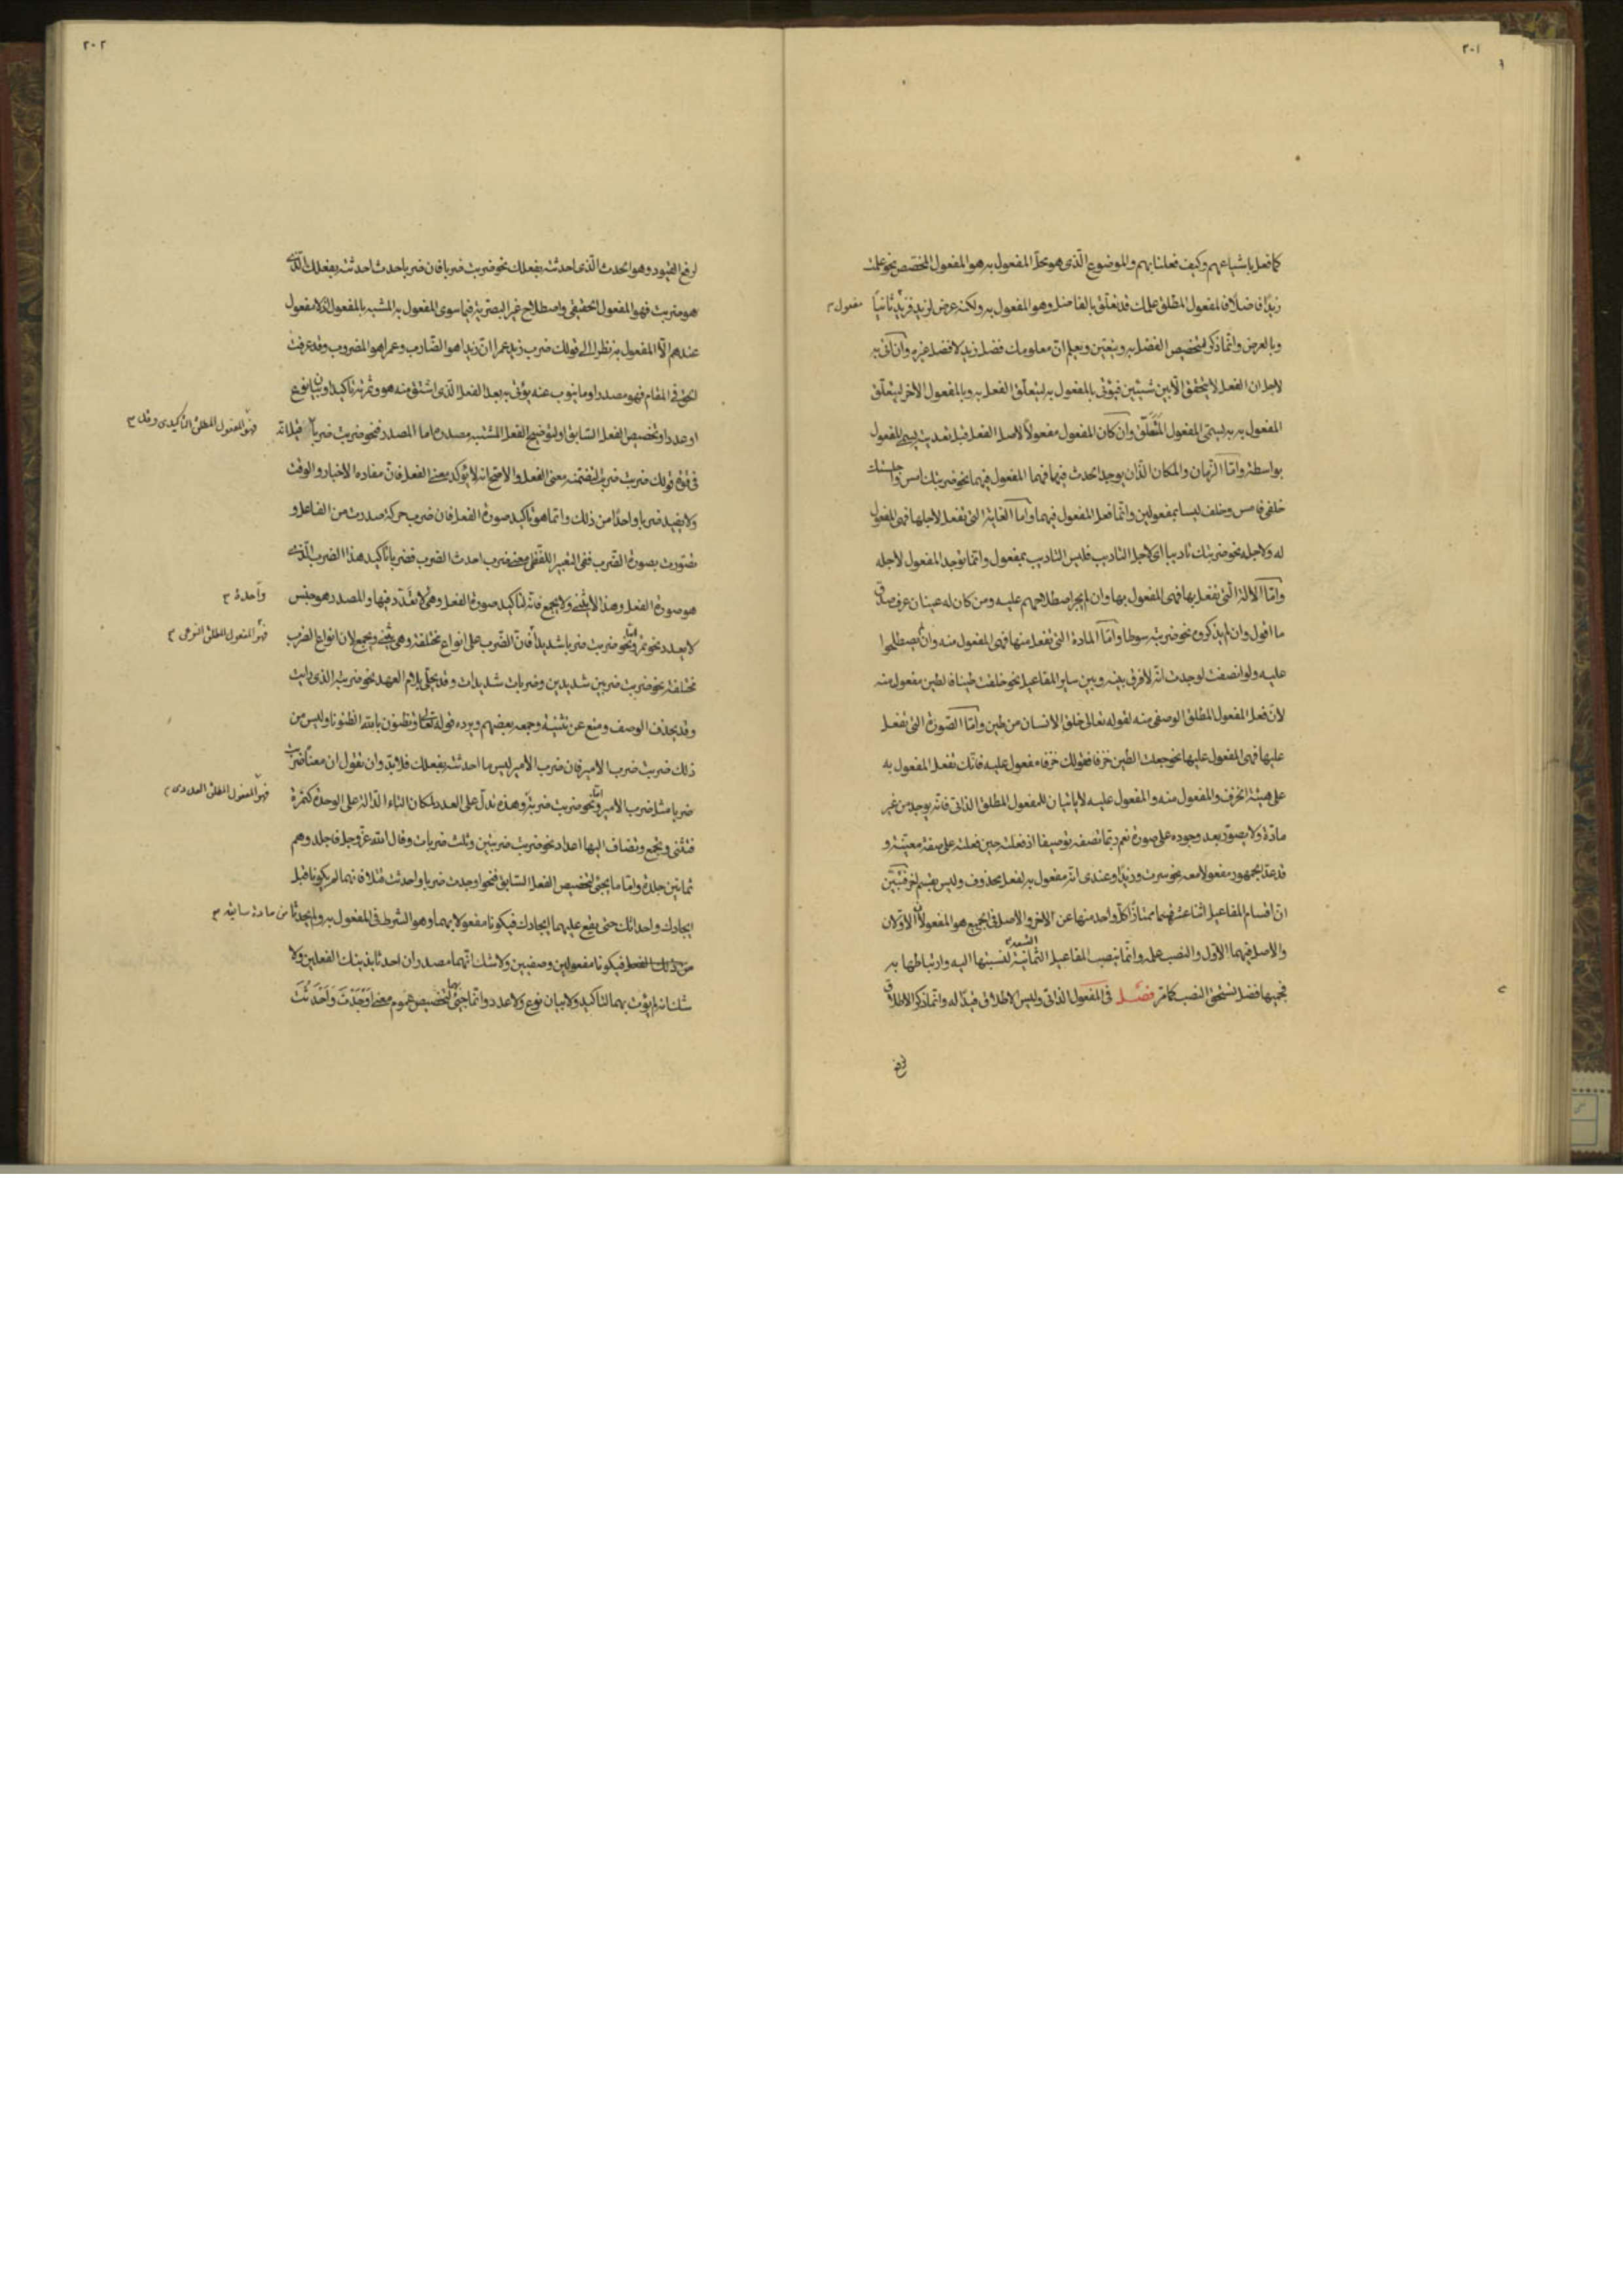 ٢٠١
كما فعل باشياعهم وكيف فعلنا بهم والموضوع الذى هو محل المفعول به هو المفعول المخصص نحو علمت
زيدا فاضلا فالمفعول المطلق علمك قد تعلق بالفاضل وهو المفعول به ولكنه عرض لزيد فزيد مفعول ثانيا
وبالعرض وانما ذكر لتخصيص الفضل به ويتعين ويعلم ان معلومك فضل زيد لا فضل غيره وان اتى به
لاجل ان الفعل لا يتحقق الا بين شيئين فيؤتى بالمفعول به ليتعلق الفعل به وبالمفعول الآخر ليتعلق
المفعول به به ليسمى المفعول المتعلق وان كان المفعول مفعولا لاصل الفعل قبل تعديته ليسمى المفعول
بواسطة واما الزمان والمكان اللذان يوجد الحدث فيهما فهما المفعول فيهما نحو ضربتك امس وجلست
خلفى فامس وخلف ليسا بمفعولين وانما فعل المفعول فيهما واما الغاية التى تفعل لاجلها فهى المفعول
له ولاجله نحو ضربتك تاديبا اى لاجل التاديب فليس التاديب بمفعول وانما يوجد المفعول لاجله
واما الآلة التى يفعل بها فهى المفعول بها وان لم يجر اصطلاحهم عليه ومن كان له عينان عرف صدق
ما اقول وان لم يذكروه نحو ضربته سوطا واما المادة التى تفعل منها فهى المفعول منه وان لم يصطلحوا
عليه ولو انصفت لوجدت انه لا فرق بينه وبين ساير المفاعيل نحو خلقت طينا فالطين مفعول منه
لان فعل المفعول المطلق الوصفى منه لقوله تعالى خلق الانسان من طين واما الصورة التى تفعل
عليها فهى المفعول عليها نحو جعلت الطين خزفا فقولك خزفا مفعول عليه فانك تفعل المفعول به
على هيئة الخزف والمفعول منه والمفعول عليه لا ياتيان للمفعول المطلق الذاتى فانه يوجد من غير
مادة ولا يصور بعد وجوده على صورة نعم ربما تصفه توصيفا اذ فعلته حين فعلته على صفة معينة و
قد عد الجمهور مفعولا معه نحو سرت وزيدا وعندى انه مفعول به لفعل محذوف وليس بقسم آخر فتبين
ان اقسام المفاعيل اثنا عشر قسما ممتازا كل واحد منها عن الآخر والاصل فى الجميع هو المفعولان الاولان
والاصل فيهما الاول والنصب عمله وانما ينصب المفاعيل الثمانية لنسبتها اليه وارتباطها به
فجميعها فضل تستحق النصب كما مر فصل فى المفعول الذاتى وليس الاطلاق قيدا له وانما ذكر الاطلاق
لرفع
٢٠٢
لرفع القيود وهو الحدث الذى احدثته بفعلك نحو ضربت ضربا فان ضربا حدث احدثته بفعلك الذى
هو ضربت فهو المفعول الحقيقى واصطلاح غير البصرية فيما سوى المفعول به المشبه بالمفعول فلا مفعول
عندهم الا المفعول به نظرا الى قولك ضرب زيد عمرا ان زيدا هو الضارب وعمرا هو المضروب وقد عرفت
الحق فى المقام فهو مصدر او ما ينوب عنه يؤتى به بعد الفعل الذى اشتق منه هو وثمرته تاكيد او بيان نوع
او عدد او تخصيص الفعل السابق او لتوضيح الفعل المشتبه مصدره اما المصدر فنحو ضربت ضربا فهو المفعول المطلق التاكيدى وقد قيل انه
فى قوة قولك ضربت ضربت لتضمنه معنى الفعل والاصح انه لا يؤكد معنى الفعل فان مفاده الاخبار والوقت
ولا يفيد ضربا واحدا من ذلك وانما هو تاكيد صورة الفعل فان ضرب حركة صدرت من الفاعل و
تصورت بصورة الضرب ففى التعبير اللفظى معنى ضرب احدث الضرب فضربا تاكيد هذا الضرب الذى
هو صورة الفعل وهذا لا يثنى ولا يجمع فانه لتاكيد صورة الفعل وهى واحدة لا تعدد فيها والمصدر هو جنس
لا يعدد نحو تمر واما نحو ضربت ضربا شديدا فهو المفعول المطلق النوعى فان الضرب على انواع مختلفة وهى يثنى ويجمع لان انواع الضرب
مختلفة نحو ضربت ضربين شديدين وضربات شديدات وقد يحلى بلام العهد نحو ضربته الذى رايت
وقد يحذف الوصف ومنع عن تثنيته وجمعه بعضهم ويرده قوله تعالى وتظنون بالله الظنونا وليس من
ذلك ضربت ضرب الامير فان ضرب الامير ليس ما احدثته بفعلك فلا بد وان نقول ان معناه ضربت
ضربا مثل ضرب الامير واما نحو ضربت ضربة فهو المفعول المطلق العددى وهذه تدل على العدد لمكان التاء الدالة على الوحدة كتمرة
فتثنى وتجمع وتضاف اليها اعداد نحو ضربت ضربتين وثلث ضربات وقال الله عز وجل فاجلدوهم
ثمانين جلدة واما ما يجئ لتخصيص الفعل السابق فنحو اوجدت ضربا واحدثت قتلا فانهما لم يكونا قبل
ايجادك واحداثك حتى يقع عليهما ايجادك فيكونا مفعولا بهما وهو الشرط فى المفعول به ولم يحدثا من مادة سابقة
من ذلك الفعل فيكونا مفعولين وصفيين ولا شك انهما مصدران احدثا بذينك الفعلين ولا
شك انه لم يؤت بهما لتاكيد ولا بيان نوع ولا عدد وانما جئ بهما لتخصيص عموم معنى اوجدت واحدثت